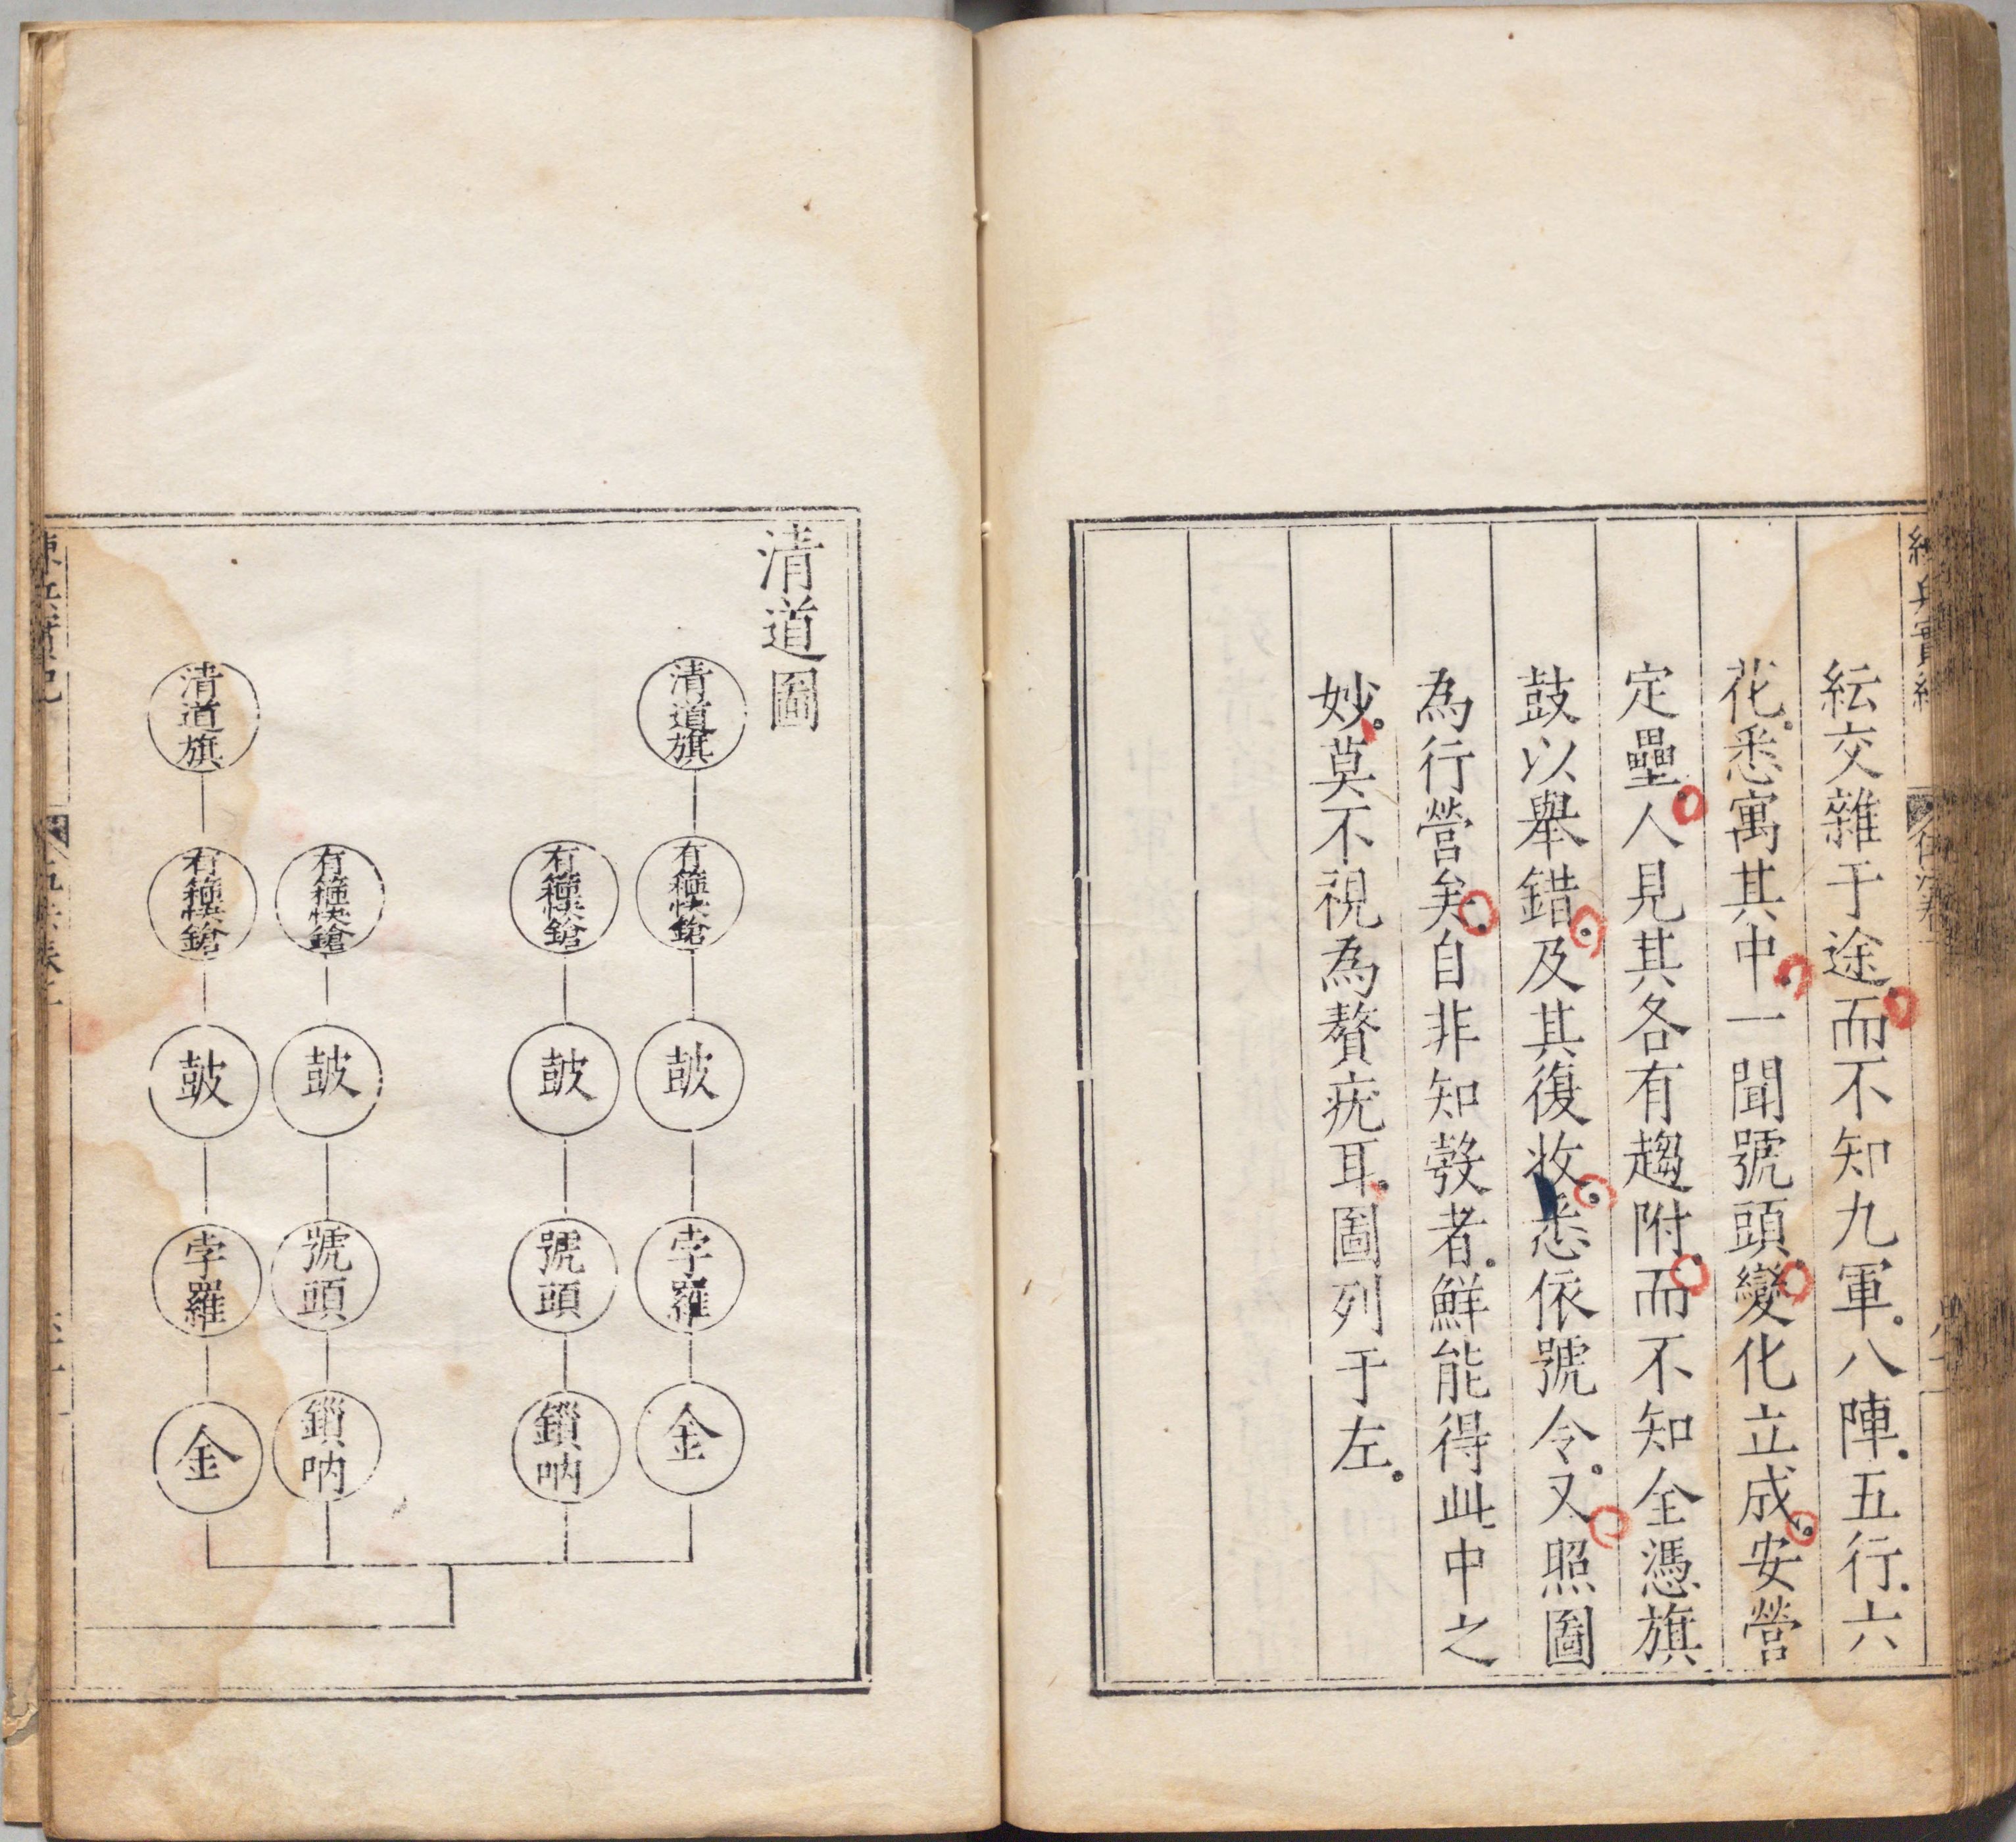 紜交雜于途而不知九軍八陣五行六
花悉寓其中一聞號頭變化立成安營
定壘人見其各有趨附而不知全憑旗
鼓以舉錯及其復收悉依號令又照圖
為行營矣自非知彀者鮮能得此中之
妙莫不視為贅疣耳圖列于左
清道圖
清道旗
清道旗
有箍快鎗
有箍快鎗
有箍快鎗
有箍快鎗
皷
皷
皷
皷
孛羅
號頭
號頭
孛羅
金
鎖吶
鎖吶
金